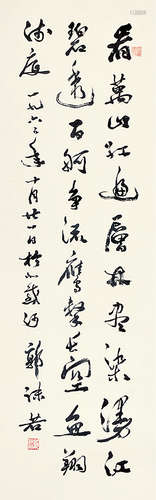 看萬山紅遍層林盡染漫江
碧透百舸爭流鷹擊長空魚翔
淺底 一九六年十月廿一日於北戴河 郭沫若